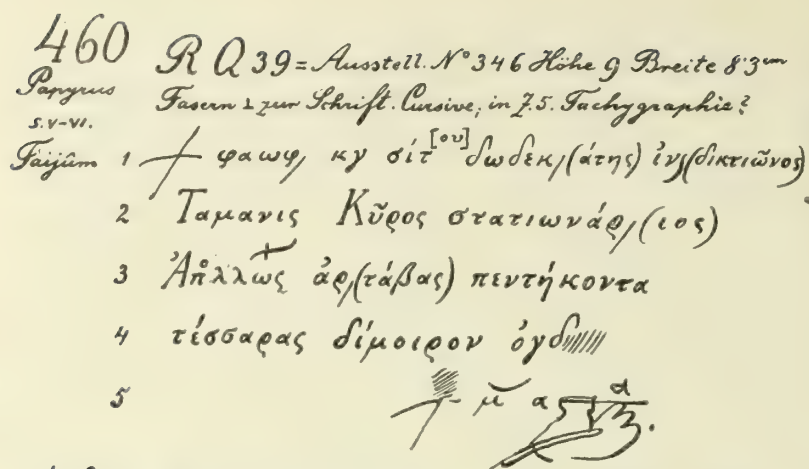 460 R Q 39 = Ausstell. N° 346 Höhe 9 Breite 8·3 cm
Papyrus Fasern ⊥ zur Schrift. Cursive; in Z. 5. Tachygraphie?
S. V–VI.
Faijûm 1 φαωφ, κγ σίτ[ου] δωδεκ,(άτης) ἰνδ(δικτιῶνος)
2 Ταμανις Κῦρος στατιωνάρ,(ιος)
3 Ἀπολλῶς ἀρ,(τάβας) πεντήκοντα
4 τέσσαρας δίμοιρον ὀγδ
5 μ α